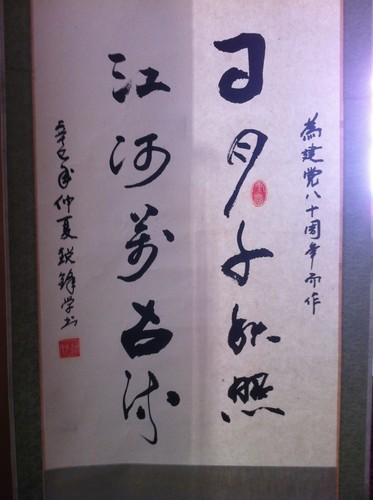 為建党八十周年而作
日月千秋照
江河萬古流
辛巳年仲夏锐锋学书